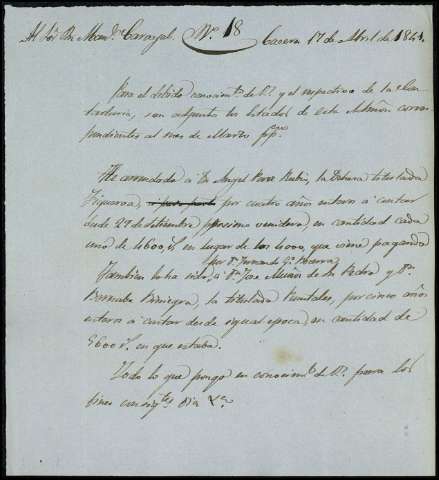 Al Sor Dn Manl. Carvajal. No. 18 Caceres 17 de Abril de 1841.
Para el debido conocimto. de V. y el respectivo de la Contaduria, son adjuntos los estados de esta Admon corres
pondientes al mes de Marzo ppo.
He arrendado á Dn Angel Perez Rubio, la Dehesa titulada
Figueroa, por cuatro años enteros á contar
desde 29 de Setiembre procsimo venidero, en cantidad cada
uno de 4600 rs. en lugar de los 4000, que viene pagando
por Dn Fernando Ga. Becerra
Tambien lo ha sido, á Dn Jose Muñoz de la Pedra y Dn
Bernabe , la titulada Runtales, por cinco años
enteros á contar desde igual epoca, en cantidad de
5600 rs. en que estaba.
Todo lo que pongo en conocimto. de V. para los
fines consigtes. Dios &a.